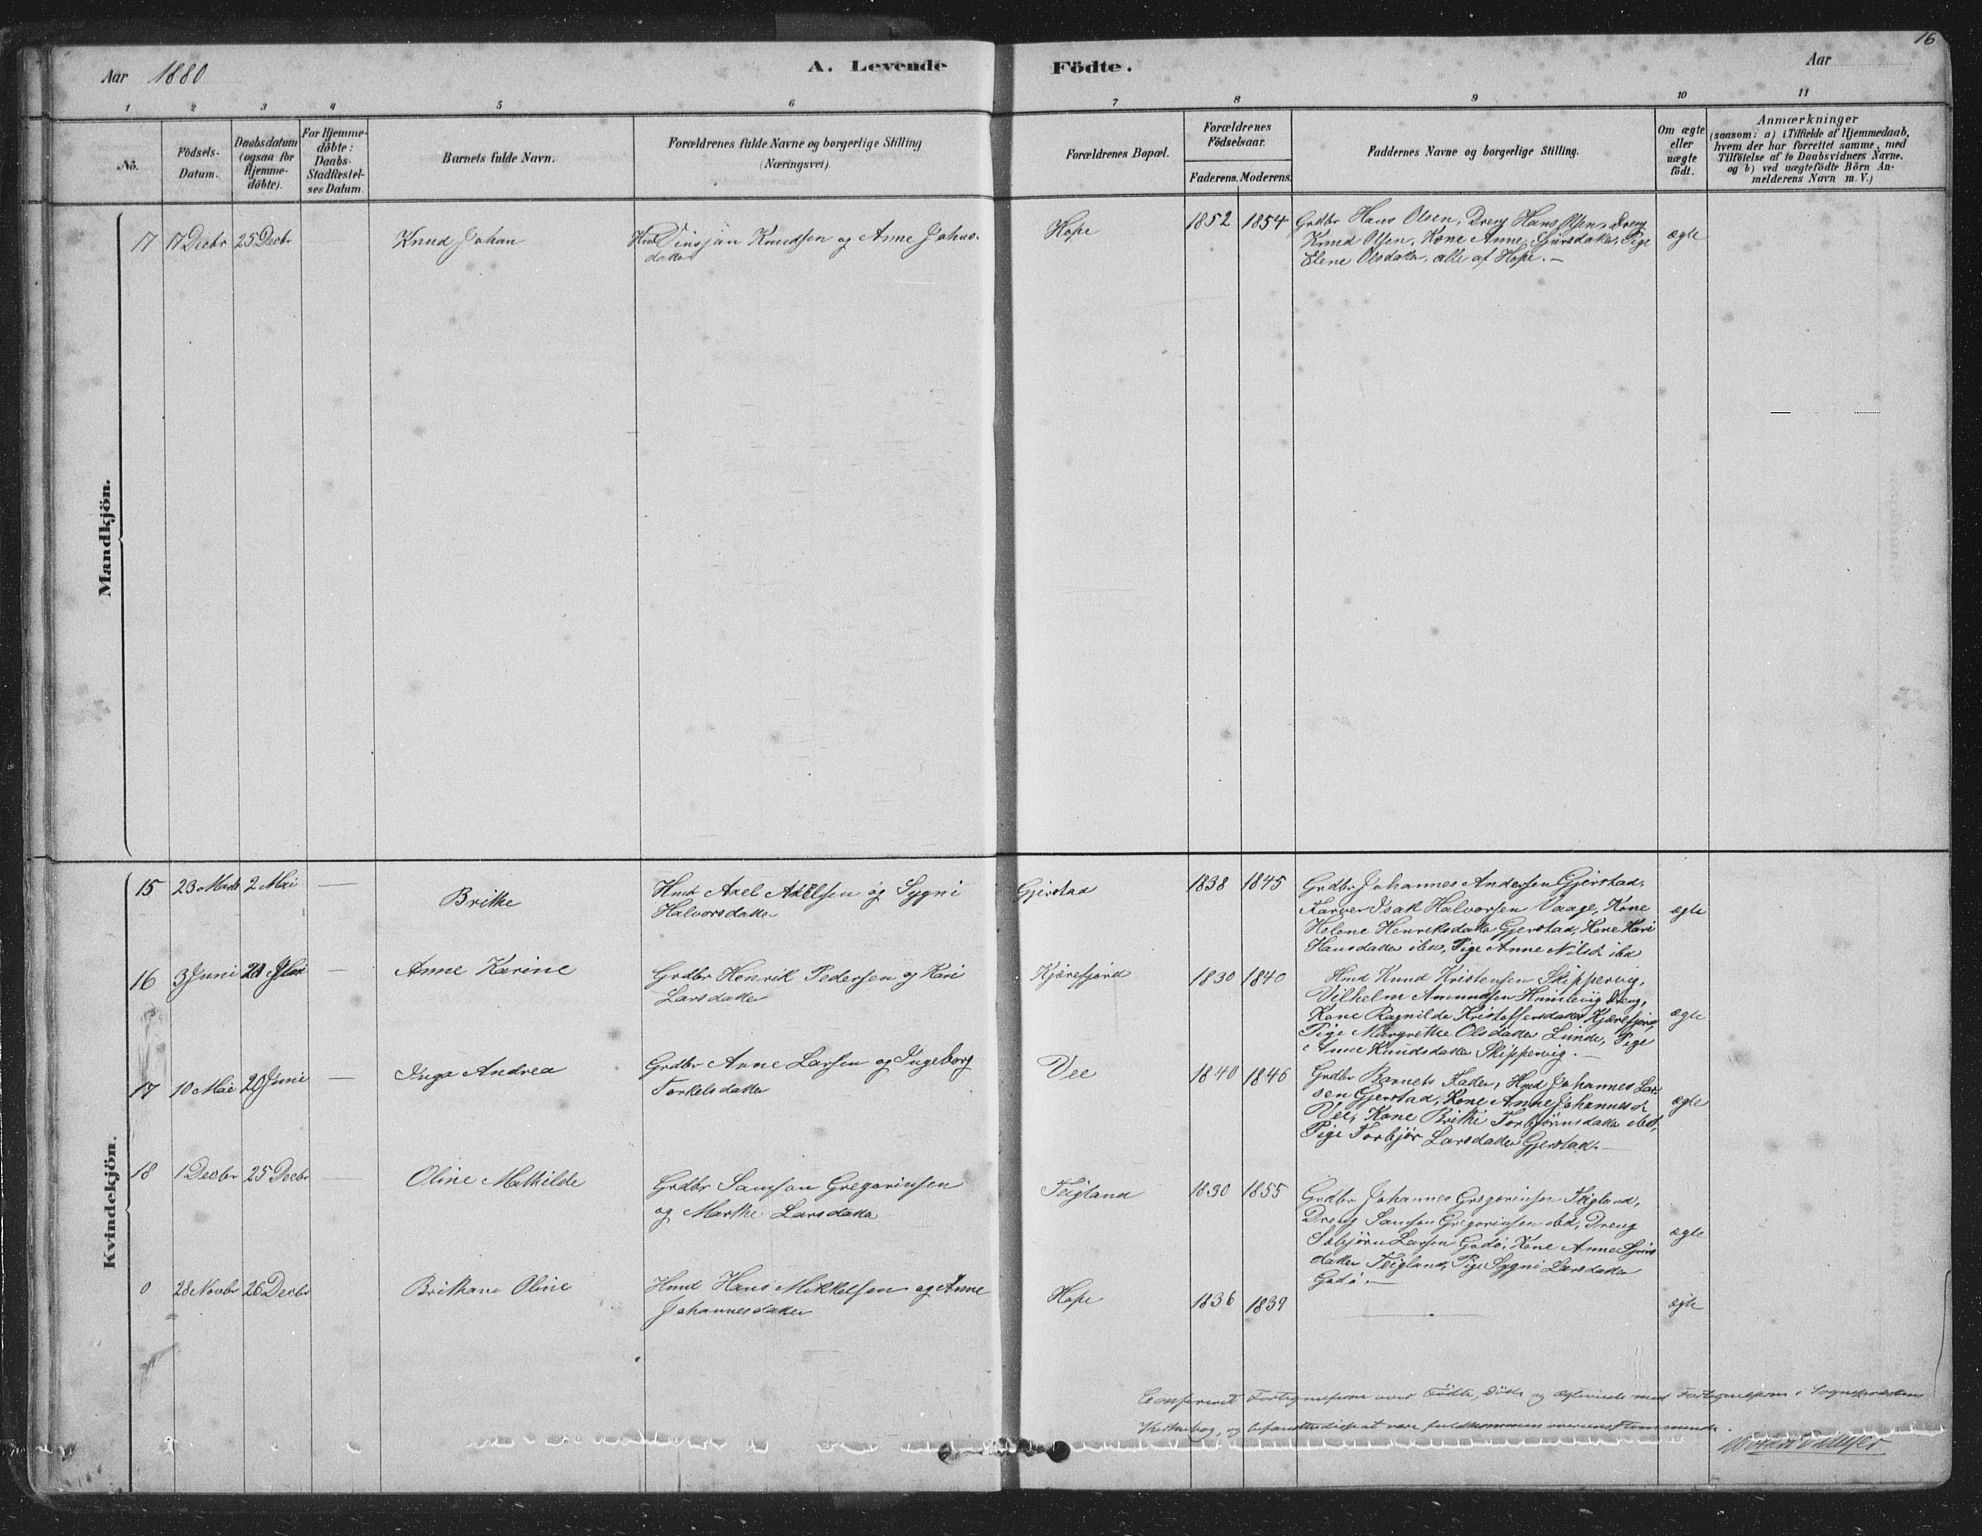 16
Aar 1880
A. Levende Födte.
Aar
1 2 3 4 5 6 7 8 9 10 11
No.
Födsels-Datum.
Daabsdatum (ogsaa for Hjemme-döbte).
For Hjemme-döbte: Daabs-Stadfæstel-ses Datum.
Barnets fulde Navn.
Forældrenes fulde Navne og borgerlige Stilling (Næringsvei).
Forældrenes Bopæl.
Forældrenes Födselsaar.
Faderens. Moderens.
Faddernes Navne og borgerlige Stilling.
Om ægte eller uægte födt.
Anmærkninger
(saasom: a) i Tilfælde af Hjemmedaab,
hvem der har forrettet samme, med
Tilföielse af to Daabsvidners Navne.
og b) ved uægtefödte Börn An-
melderens Navn m. V.)
Mandkjön.
17 17 Decbr 25 Decbr — Knud Johan
Hmd Vinsjan Knudsen og Anne Johns-
datter
Hope 1852 1854
Grdbr Hans Olsen, Dreng Hans Olsen, Dreng
Knud Olsen, Kone Anne Sjursdatter, Pige
Elene Olsdatter, alle af Hope. —
ægte
Kvindekjön.
15 23 Marts 2 Mai — Brithe
Hmd Axel Axelsen og Sygni
Halvorsdatter
Gjerstad 1838 1845
Grdbr Johannes Andersen Gjerstad,
Farver Isak Halvorsen Vaage, Kone
Helene Henriksdatter Gjerstad, Kone Kari
Hansdatter ibd, Pige Anne Nilsd. ibd
ægte
16 3 Juni — Anne Karine
Grdbr Henrik Pedersen og Kari
Larsdatter
Kjærefjord 1830 1840
Hmd Knud Kristensen Skippervig,
Vilhelm Amundsen Humlevig Dreng,
Kone Ragnilde Kristoffersdatter Kjærefjord,
Pige Margrethe Olsdatter Lunde, Pige
Anne Knudsdatter Skippervig. —
ægte
17 10 Mai 20 Juni — Inga Andrea
Grdbr Arne Larsen og Ingeborg
Torkelsdatter
Vee 1840 1846
Grdbr Barnets Fader, Hmd Johannes Lar-
sen Gjerstad, Kone Anne Johannesd.
Vee, Kone Brithe Torbjörnsdatter ibd,
Pige Torbjør Larsdatter Gjerstad. —
ægte
18 1 Decbr 25 Decbr — Oline Mathilde
Grdbr Samson Gregoriusen
og Marthe Larsdatter
Teigland 1830 1855
Grdbr Johannes Gregoriusen Teigland,
Dreng Samson Gregoriusen ibd, Dreng
Larsen Godö, Kone Anne Sjurs
datter Teigland, Pige Sygni Larsdatter
Godö. —
ægte
0 28 Novbr 26 Decbr Brithane Oline
Hmd Hans Mikkelsen og Anne
Johannesdatter
Hope 1836 1839 — ægte
Confereret Fortegnelserne over Födte, Döde og Ægteviede med Fortegnelserne i Sognepræstens
Kirkebog, og befandtes disse at være fuldkommen overensstemmende.